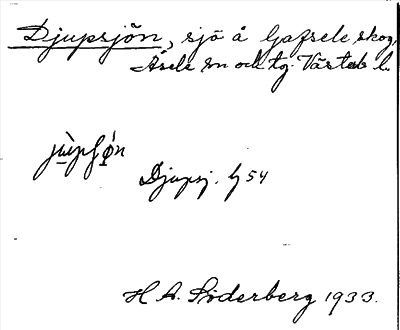 Djupsjön, sjö å Gafsele skog,
Åsele sn och tg. Västerb l.
Djupsj. G 54
H A. Söderberg 1933.